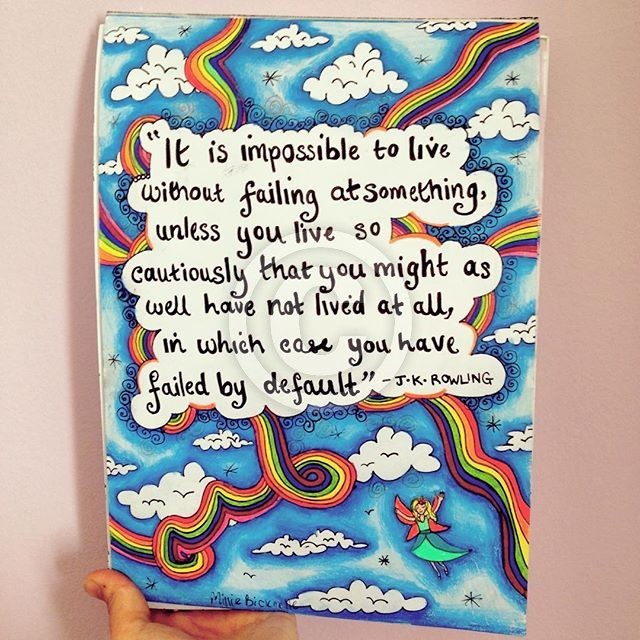 "It is impossible to live
without failing at something,
unless you live so
cautiously that you might as
well have not lived at all,
in which case you have
failed by default" - J.K. ROWLING
Millie